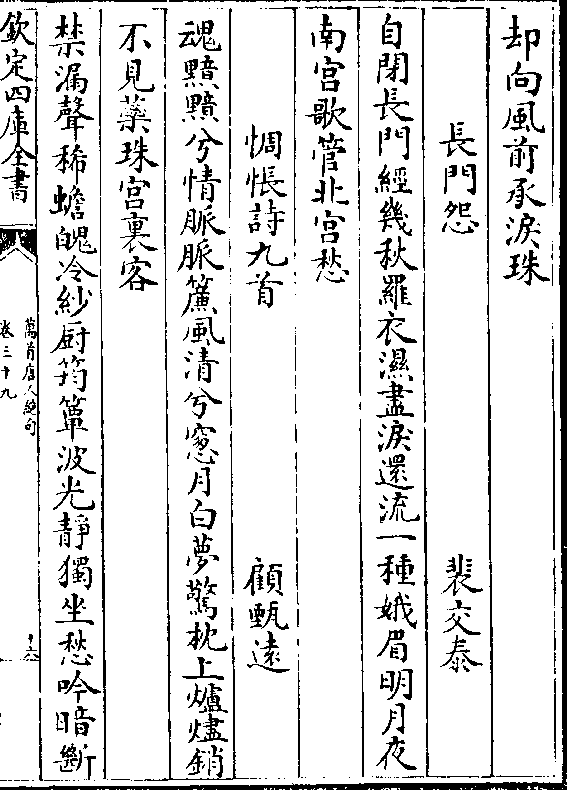 却向風前承淚珠
長門怨 裴交泰
自閉長門經幾秋羅衣濕盡淚還流一種娥眉明月夜
南宮歌管北宮愁
惆悵詩九首 顧甄遠
魂黯黯兮情脈脈簾風清兮窓月白夢驚枕上爐燼銷
不見蘂珠宮裏客
禁漏聲稀蟾魄冷紗厨筠簟波光靜獨坐愁吟暗斷
欽定四庫全書
萬首唐人絶句
卷三十九
十六